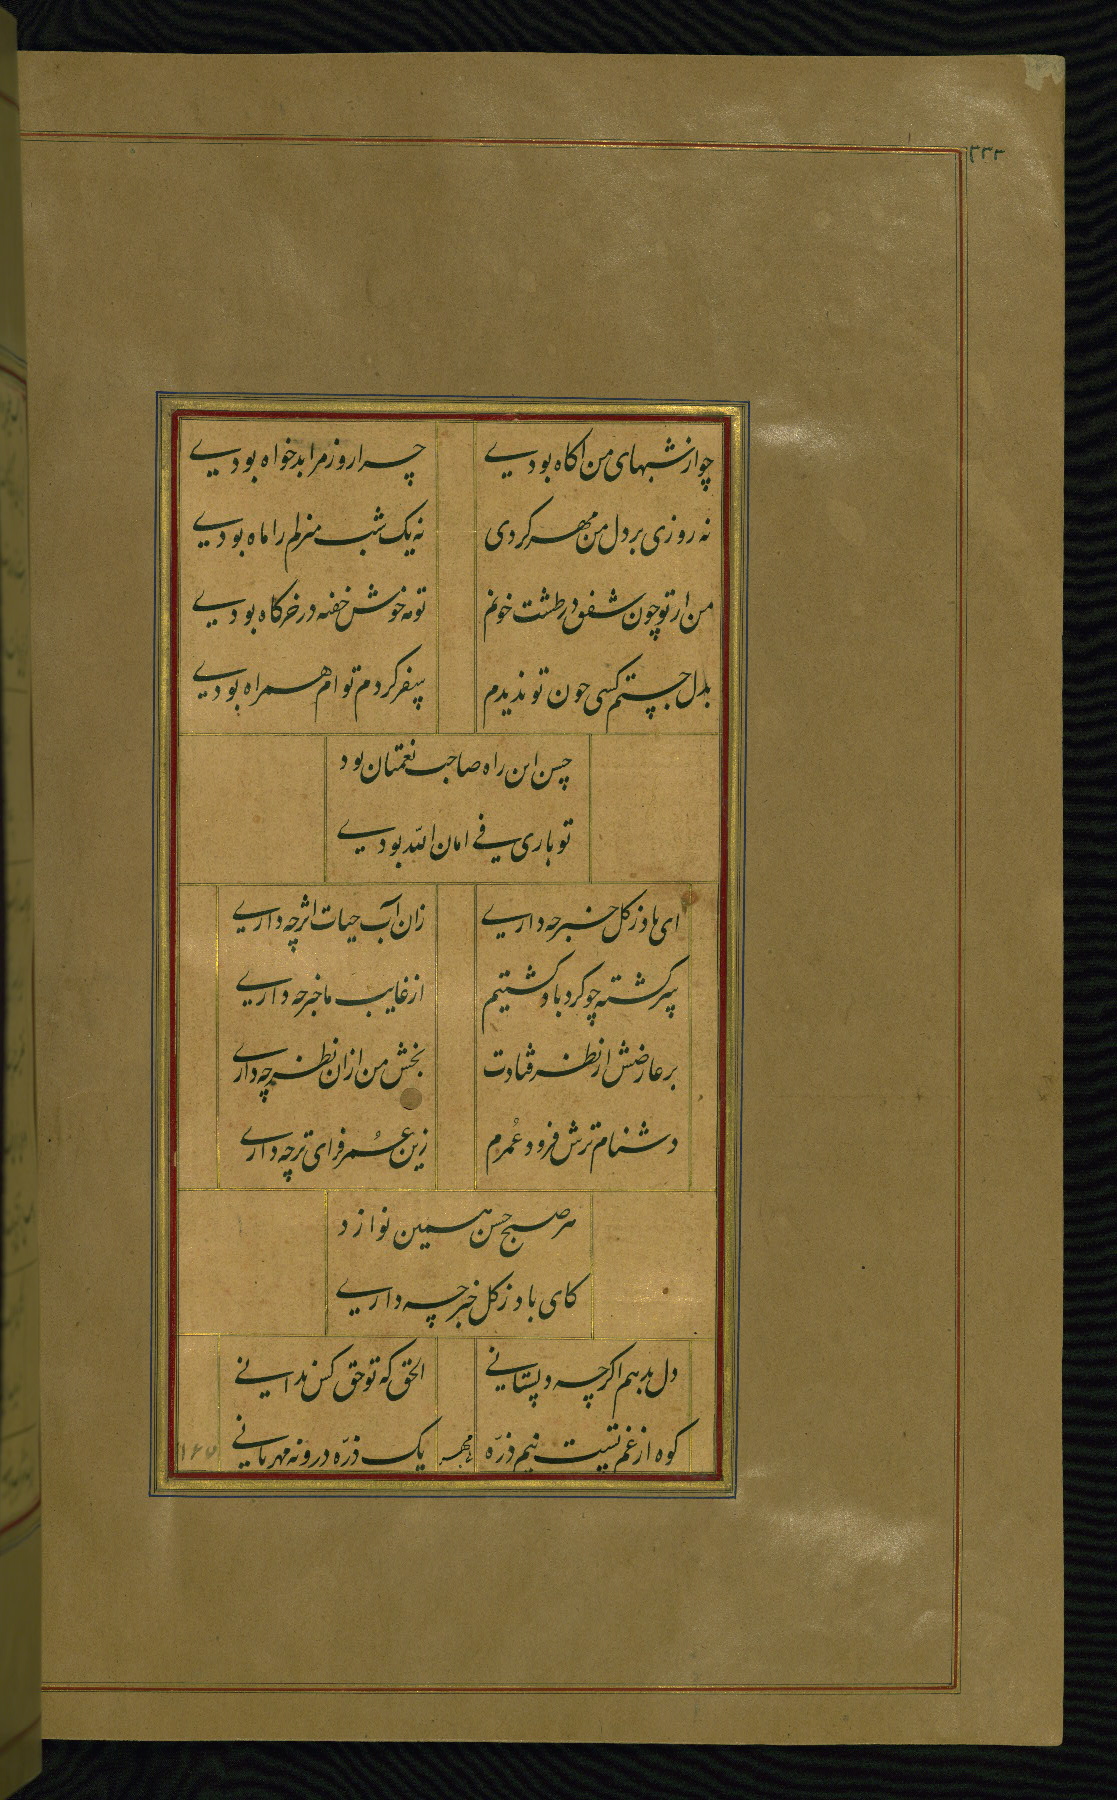 چو از شبهای من اکاه بودی چرا روز مرا بدخواه بودی
نه روزی بر دل من مهر کردی نه یک شب منزلم را ماه بودی
من از تو چون شفق در طشت خونم تو مه خوش خفته در خرکاه بودی
بدل جستم کسی چون تو ندیدم سفر کردم توام همراه بودی
حسن این راه صاحب نعمتان بود
تو باری فی امان الله بودی
ای باد ز کل خبر چه داری زان آب حیات اثر چه داری
سرکشته چو کرد باد کشتیم از غایب ما خبر چه داری
بر عارضش از نظر فتادت بخش من از ان نظر چه داری
دشنام ترش فزود عمرم زین عمر فزای تر چه داری
هر صبح حسن همین نوازد
کای باد ز کل خبر چه داری
دل بدهم اکرچه دیستانی الحق که تو حق کس ندانی
کوه از غم تست نیم ذره یک ذره درو نه مهربانی